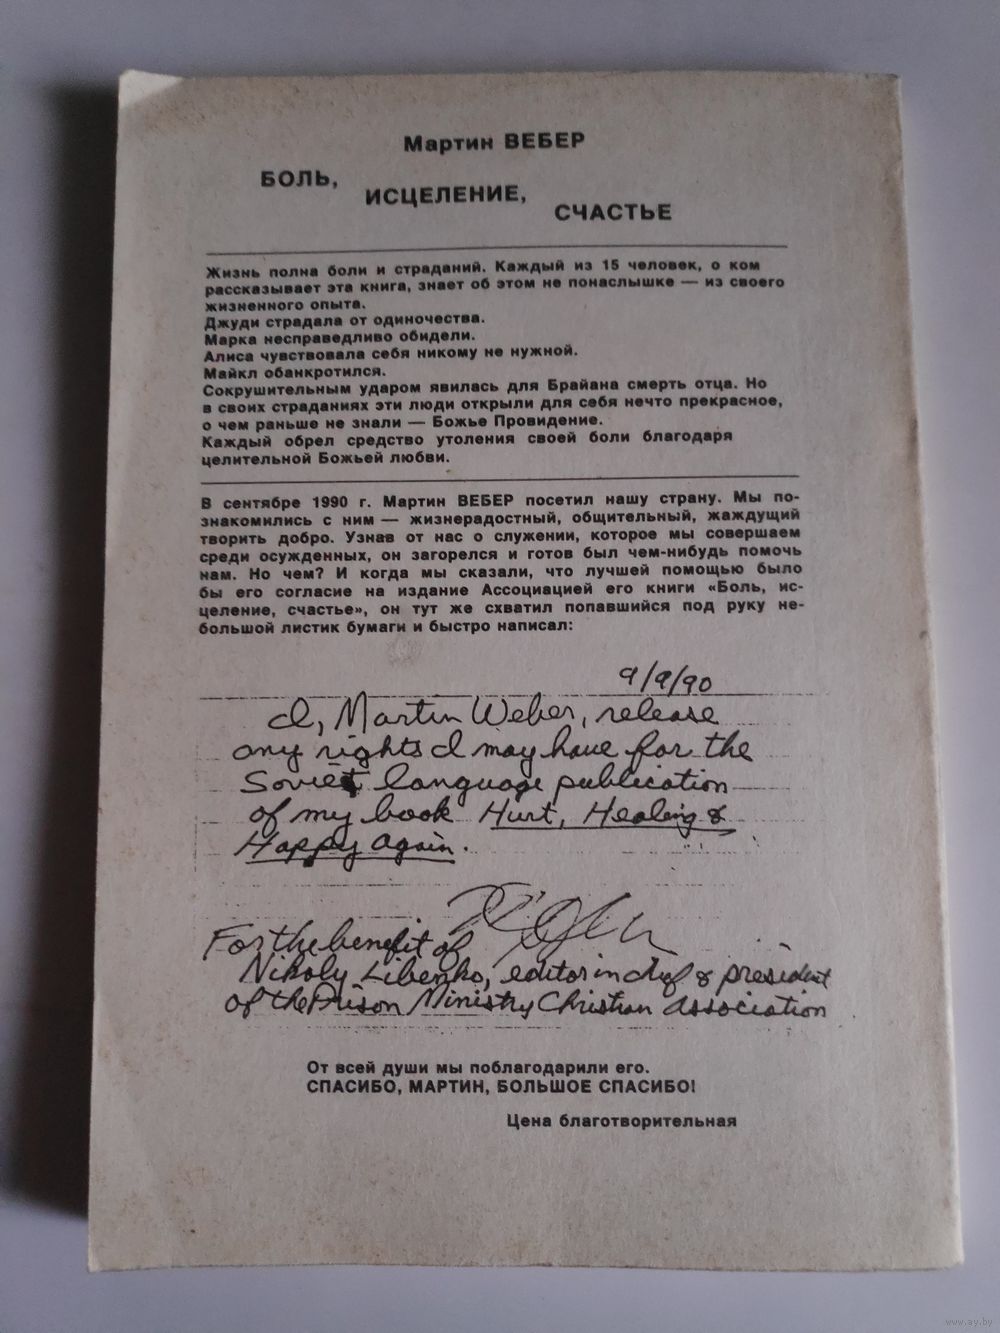 Мартин ВЕБЕР
БОЛЬ,
ИСЦЕЛЕНИЕ,
СЧАСТЬЕ
Жизнь полна боли и страданий. Каждый из 15 человек, о ком
рассказывает эта книга, знает об этом не понаслышке — из своего
жизненного опыта.
Джуди страдала от одиночества.
Марка несправедливо обидели.
Алиса чувствовала себя никому не нужной.
Майкл обанкротился.
Сокрушительным ударом явилась для Брайана смерть отца. Но
в своих страданиях эти люди открыли для себя нечто прекрасное,
о чем раньше не знали — Божье Провидение.
Каждый обрел средство утоления своей боли благодаря
целительной Божьей любви.
В сентябре 1990 г. Мартин ВЕБЕР посетил нашу страну. Мы по-
знакомились с ним — жизнерадостный, общительный, жаждущий
творить добро. Узнав от нас о служении, которое мы совершаем
среди осужденных, он загорелся и готов был чем-нибудь помочь
нам. Но чем? И когда мы сказали, что лучшей помощью было
бы его согласие на издание Ассоциацией его книги «Боль, ис-
целение, счастье», он тут же схватил попавшийся под руку не-
большой листик бумаги и быстро написал:
9/9/90
I, Martin Weber, release
any rights I may have for the
Soviet language publication
of my book Hurt, Healing &
Happy Again.
For the benefit of
Nikoly Libenko, editor in chief & president
of the Prison Ministry Christian Association
От всей души мы поблагодарили его.
СПАСИБО, МАРТИН, БОЛЬШОЕ СПАСИБО!
Цена благотворительная
www.ay.by